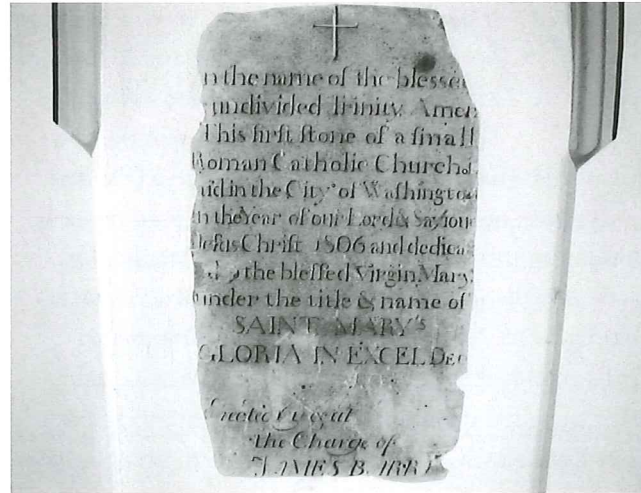 n the name of the blessed
undivided Trinity Amen
This first stone of a small
Roman Catholic Church is
laid in the City of Washington
in the Year of our Lord & Saviour
Jesus Christ 1806 and dedica
the blessed Virgin Mary
under the title & name of
SAINT MARY's
GLORIA IN EXCEL DEO
the Charge of
JAMES BARRY